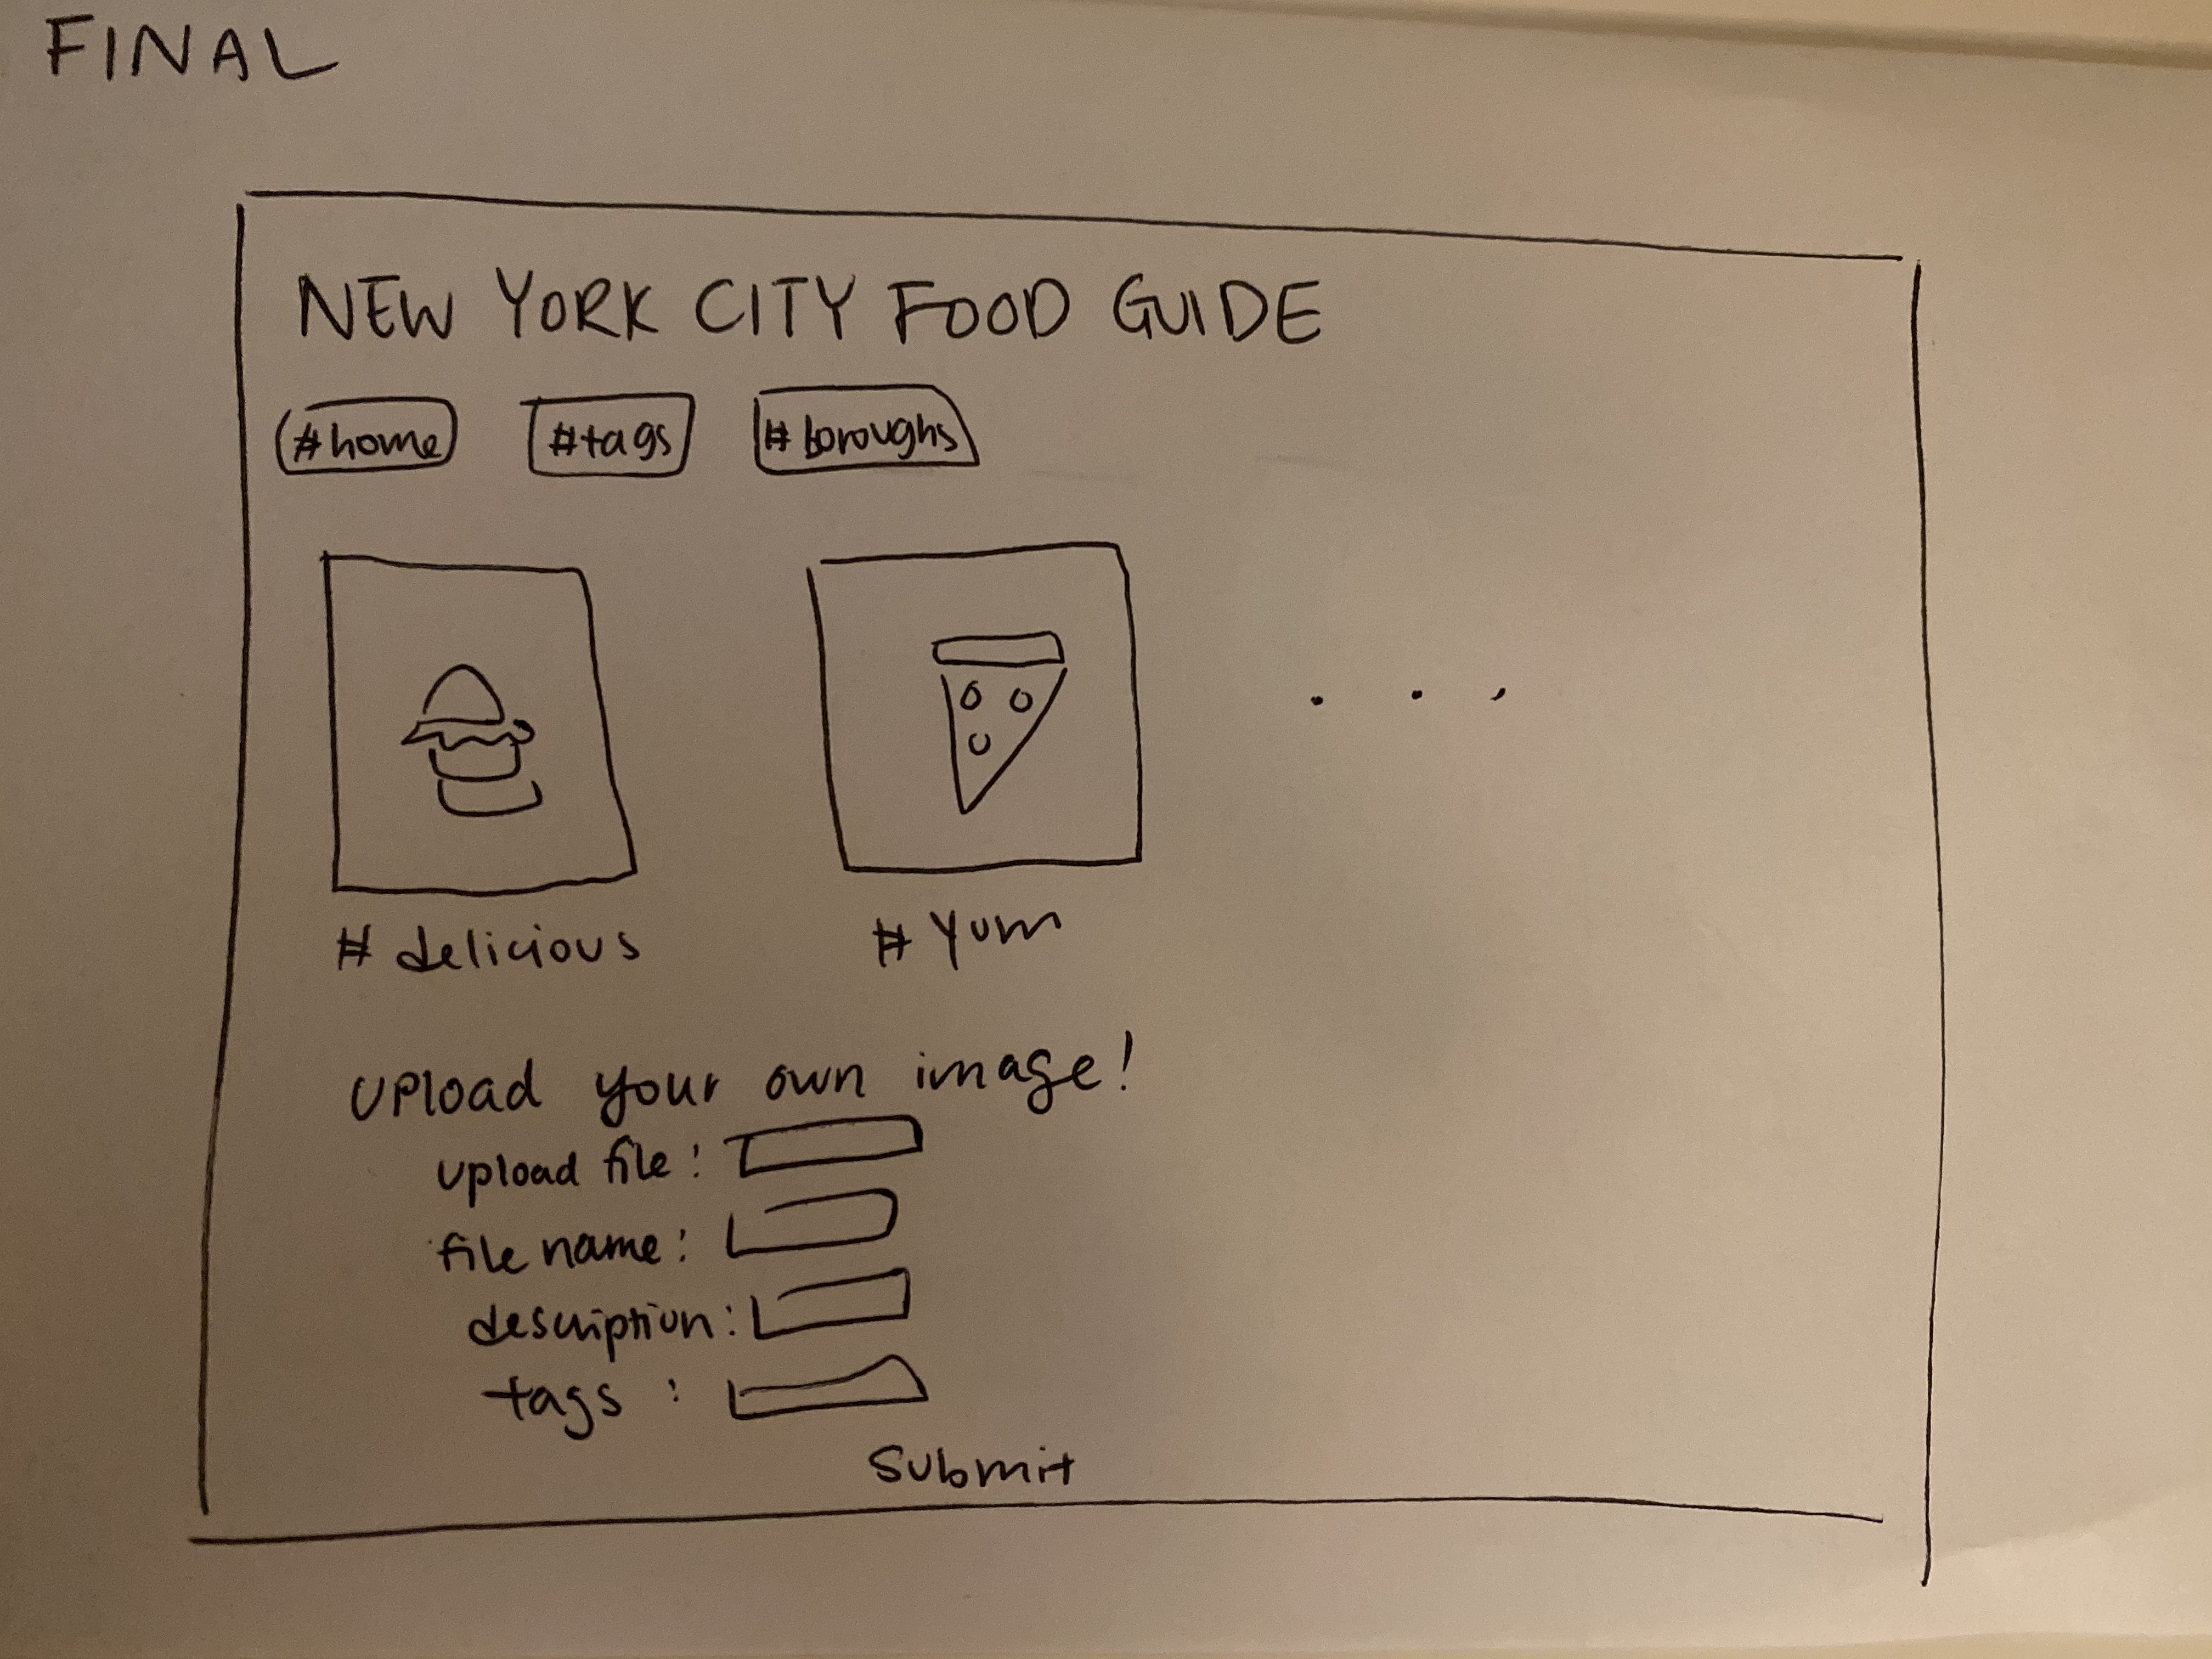 FINAL
NEW YORK CITY FOOD GUIDE
#home #tags #boroughs
#delicious #Yum
Upload your own image!
upload file:
file name:
description:
tags:
submit